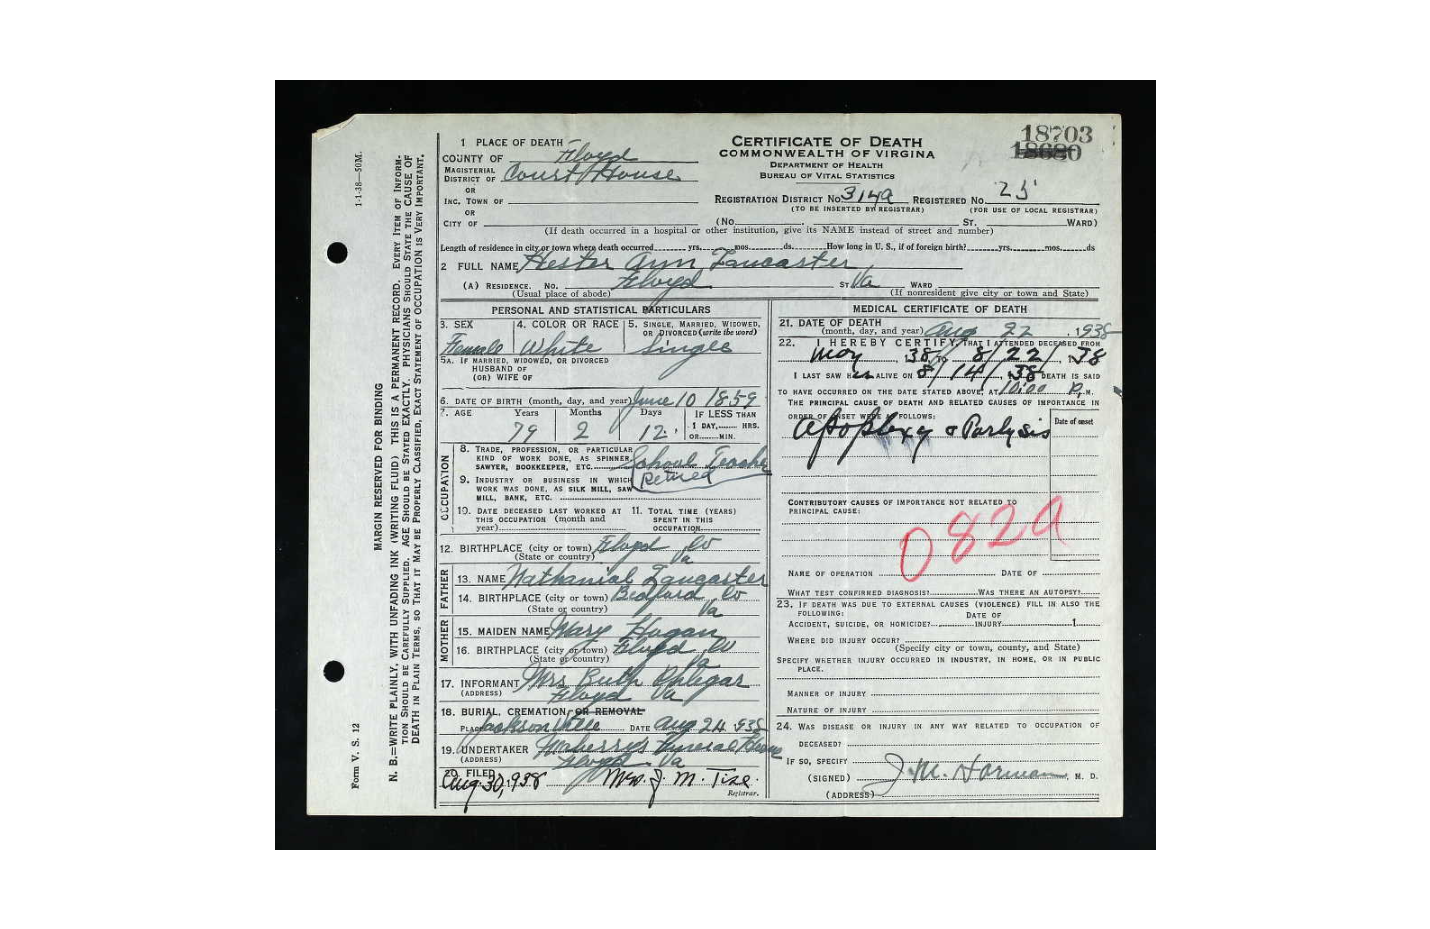 18703
18680
1 PLACE OF DEATH
COUNTY OF Floyd
MAGISTERIAL DISTRICT OF Court House
OR
INC. TOWN OF
OR
CITY OF
CERTIFICATE OF DEATH
COMMONWEALTH OF VIRGINIA
DEPARTMENT OF HEALTH
BUREAU OF VITAL STATISTICS
REGISTRATION DISTRICT No. 314a REGISTERED No. 25
(TO BE INSERTED BY REGISTRAR) (FOR USE OF LOCAL REGISTRAR)
(No. ST, WARD)
(If death occurred in a hospital or other institution, give its NAME instead of street and number)
Length of residence in city or town where death occurred yrs. mos. ds. How long in U. S., if of foreign birth? yrs. mos. ds
2 FULL NAME Hester Ann Lancaster
(A) RESIDENCE. No. Floyd ST Va WARD
(Usual place of abode) (If nonresident give city or town and State)
PERSONAL AND STATISTICAL PARTICULARS
3. SEX 4. COLOR OR RACE 5. SINGLE, MARRIED, WIDOWED, OR DIVORCED (write the word)
Female White Single
5A. IF MARRIED, WIDOWED, OR DIVORCED
HUSBAND OF
(OR) WIFE OF
6. DATE OF BIRTH (month, day, and year) June 10 1859
7. AGE Years Months Days IF LESS THAN
79 2 12 1 DAY, HRS.
OR MIN.
OCCUPATION
8. TRADE, PROFESSION, OR PARTICULAR
KIND OF WORK DONE, AS SPINNER,
SAWYER, BOOKKEEPER, ETC. School Teacher
Retired
9. INDUSTRY OR BUSINESS IN WHICH
WORK WAS DONE, AS SILK MILL, SAW
MILL, BANK, ETC.
10. DATE DECEASED LAST WORKED AT
THIS OCCUPATION (month and
year)
11. TOTAL TIME (YEARS)
SPENT IN THIS
OCCUPATION
12. BIRTHPLACE (city or town) Floyd Co
(State or country) Va
FATHER
13. NAME Nathanial Lancaster
14. BIRTHPLACE (city or town) Bedford Co
(State or country) Va
MOTHER
15. MAIDEN NAME Mary Hogan
16. BIRTHPLACE (city or town) Floyd Co
(State or country) Va
17. INFORMANT Mrs Ruth
(ADDRESS) Floyd Va
18. BURIAL, CREMATION, OR REMOVAL
PLACE Jacksonville DATE Aug 24 1938
19. UNDERTAKER Funeral Home
(ADDRESS) Floyd Va
20. FILED
Aug 30, 1938 Mrs. J. M.
Registrar.
MEDICAL CERTIFICATE OF DEATH
21. DATE OF DEATH
(month, day, and year) Aug 22, 1938
22. I HEREBY CERTIFY, THAT I ATTENDED DECEASED FROM
May, 38 TO 8/22/, 38
I LAST SAW H ALIVE ON 8/14/, 38 DEATH IS SAID
TO HAVE OCCURRED ON THE DATE STATED ABOVE, AT 10:00 P. M.
THE PRINCIPAL CAUSE OF DEATH AND RELATED CAUSES OF IMPORTANCE IN
ORDER OF ONSET WERE AS FOLLOWS: Date of onset
Apoplexy & Parlysis
CONTRIBUTORY CAUSES OF IMPORTANCE NOT RELATED TO
PRINCIPAL CAUSE:
082a
NAME OF OPERATION DATE OF
WHAT TEST CONFIRMED DIAGNOSIS? WAS THERE AN AUTOPSY?
23. IF DEATH WAS DUE TO EXTERNAL CAUSES (VIOLENCE) FILL IN ALSO THE
FOLLOWING: DATE OF
ACCIDENT, SUICIDE, OR HOMICIDE? INJURY 1
WHERE DID INJURY OCCUR?
(Specify city or town, county, and State)
SPECIFY WHETHER INJURY OCCURRED IN INDUSTRY, IN HOME, OR IN PUBLIC
PLACE.
MANNER OF INJURY
NATURE OF INJURY
24. WAS DISEASE OR INJURY IN ANY WAY RELATED TO OCCUPATION OF
DECEASED?
IF SO, SPECIFY
(SIGNED) J. M. Harman, M. D.
(ADDRESS)
1-1-38—50M.
Form V. S. 12
MARGIN RESERVED FOR BINDING
N. B.—WRITE PLAINLY, WITH UNFADING INK (WRITING FLUID) THIS IS A PERMANENT RECORD. EVERY ITEM OF INFORM-
TION SHOULD BE CAREFULLY SUPPLIED. AGE SHOULD BE STATED EXACTLY. PHYSICIANS SHOULD STATE THE CAUSE OF
DEATH IN PLAIN TERMS, SO THAT IT MAY BE PROPERLY CLASSIFIED. EXACT STATEMENT OF OCCUPATION IS VERY IMPORTANT.